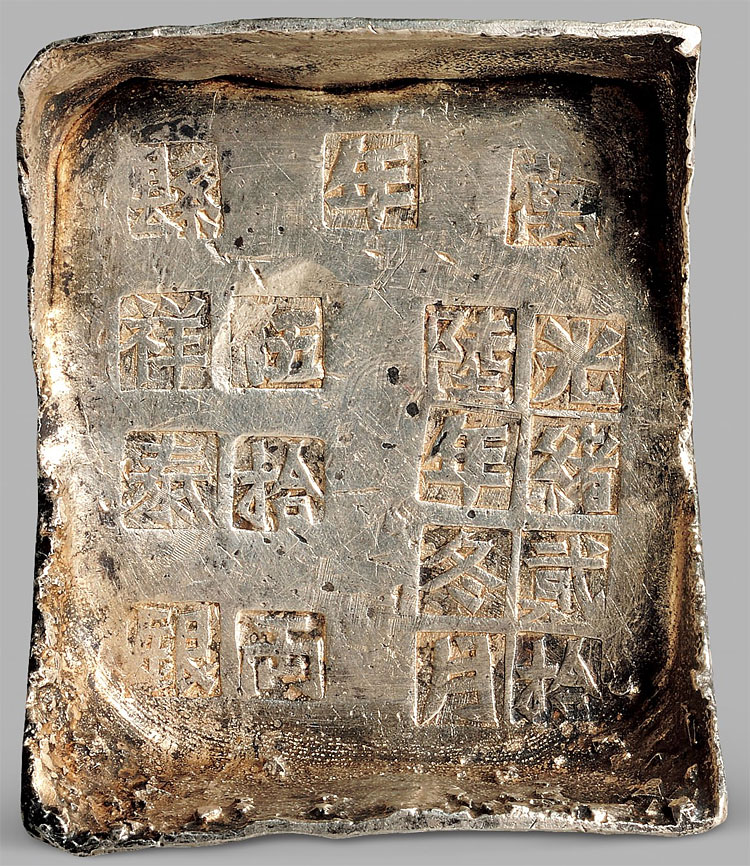 萬年縣
光緒貳拾
陸年冬月
伍拾兩
祥泰銀